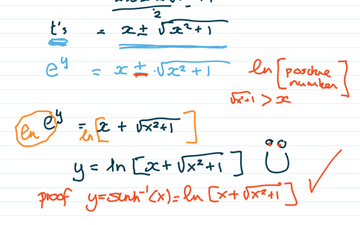 2
t's = x ± √x²+1
e^y = x ± √x²+1
ln [positive number]
√x²+1 > x
ln e^y = ln[x + √x²+1]
y = ln [x + √x²+1]
proof y=senh⁻¹(x)=ln [x+√x²+1] ✓